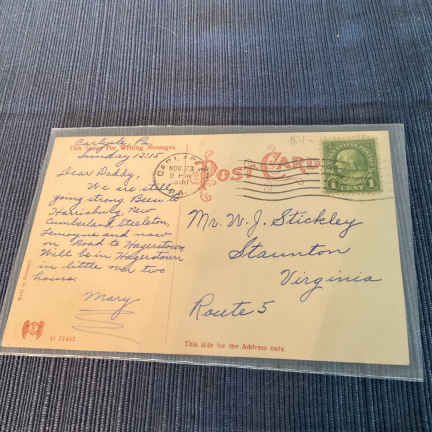 Carlisle Pa.
This Space For Writing Messages.
Sunday 12:15
Dear Daddy,
We are still
going strong Been to
Harrisburg New
Cumberland Steelton
Lemoyne and now
on Road to Hagerstown
Will be in Hagerstown
in little over two
hours.
Mary
POST CARD
NOV 23
1 CENT 1
Mr. W. J. Stickley
Staunton
Virginia
Route 5
This side for the Address only.